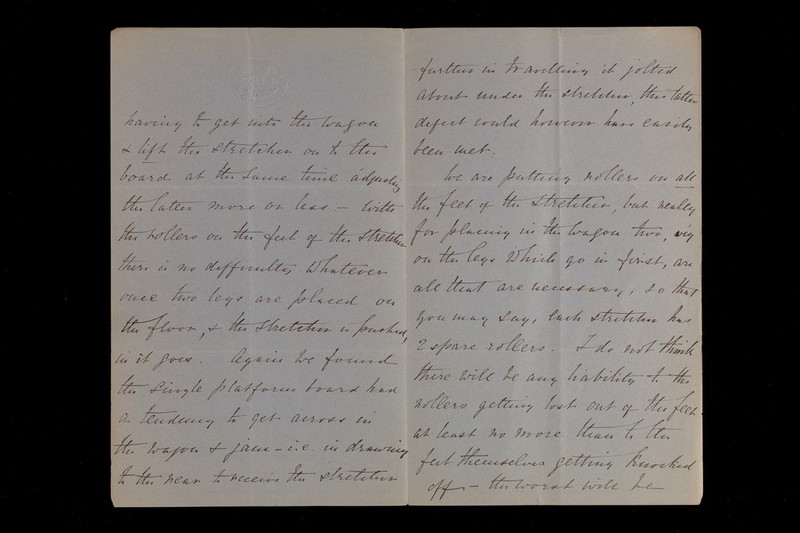 having to get into the wagon
& lift the stretcher on to the
board at the same time adjusting
the latter more or less – with
the rollers on the feet of the stretcher
there is no difficulty whatever
once two legs are placed on
the floor, & the stretcher is pushed,
in it goes. Again we found
the single platform board had
a tendency to get across in
the wagon & jam – i.e. in drawing
to the rear to receive the stretcher
further in travelling it jolted
about under the stretcher, this latter
defect could however have easily
been met.
We are putting rollers on all
the feet of the stretcher, but really
for placing in the wagon two, viz
on the legs which go in first, are
all that are necessary, so that
you may say, each stretcher has
2 spare rollers. I do not think
there will be any liability to the
rollers getting lost out of the feet
at least no more than to the
feet themselves getting knocked
off – the worst will be